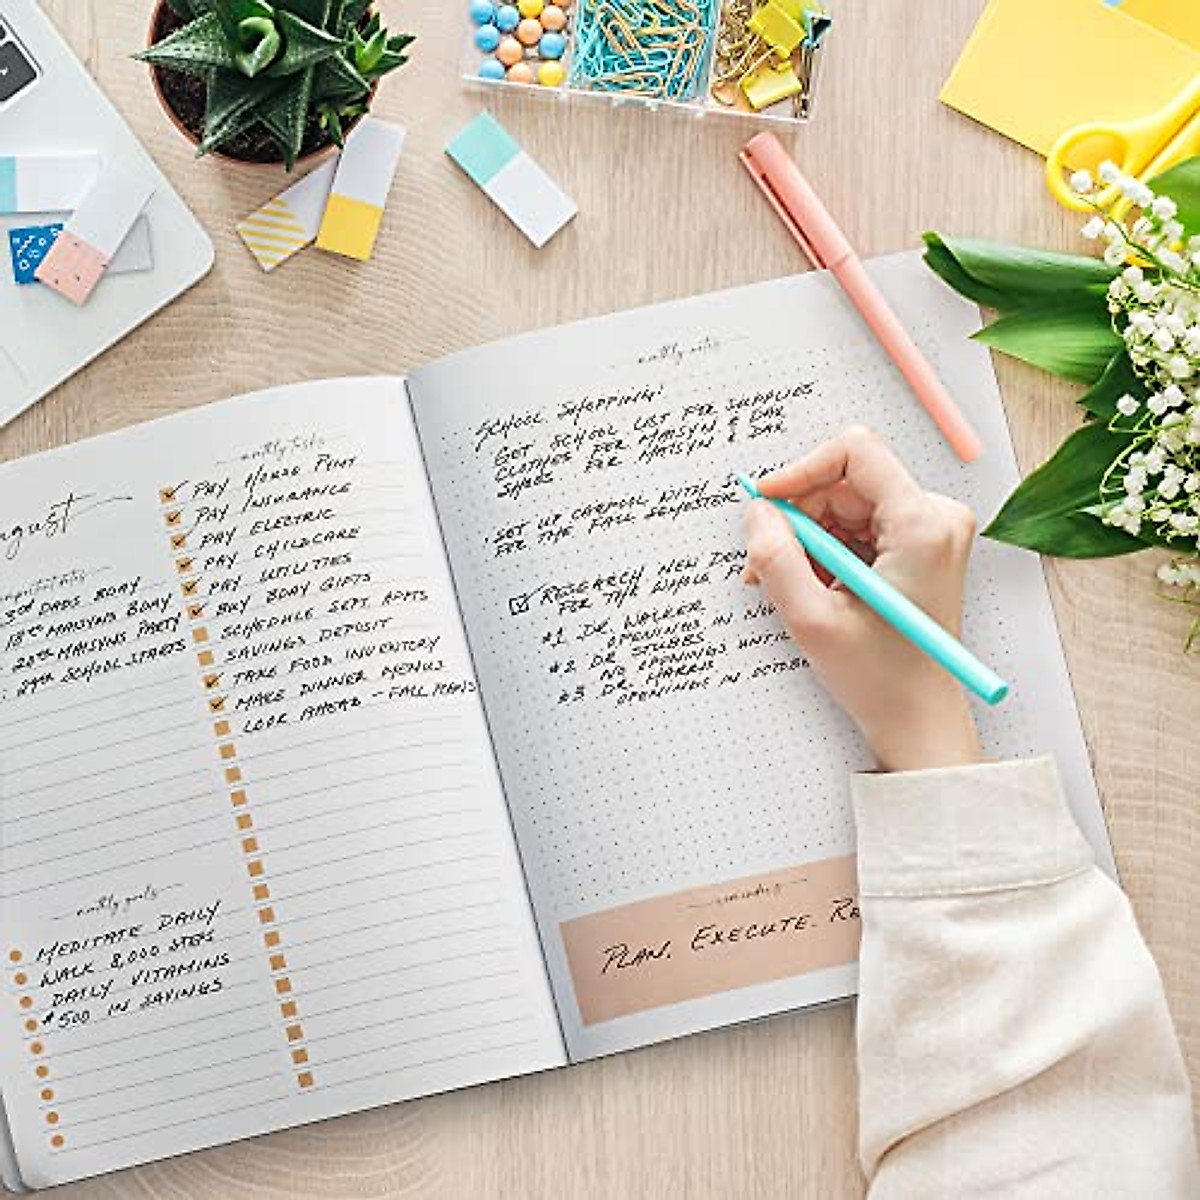 august
important dates
3rd DADS BDAY
18th MAISYNS BDAY
20th MAISYNS PARTY
29th SCHOOL STARTS
monthly tasks
PAY HOUSE PYMT
PAY INSURANCE
PAY ELECTRIC
PAY CHILDCARE
PAY UTILITIES
BUY BDAY GIFTS
SCHEDULE SEPT. APPTS
SAVINGS DEPOSIT
TAKE FOOD INVENTORY
MAKE DINNER MENUS
LOOK AHEAD - FALL PLANS
monthly goals
MEDITATE DAILY
WALK 8,000 STEPS
DAILY VITAMINS
$500 IN SAVINGS
monthly notes
SCHOOL SHOPPING!
GET SCHOOL LIST FOR SUPPLIES.
CLOTHES FOR MAISYN & DAX
SHOES FOR MAISYN & DAX
SET UP CARPOOL WITH
FOR THE FALL SEMESTER
RESEARCH NEW DEN
FOR THE WHOLE F
#1 DR. WALKER,
OPENINGS IN NOV
#2 DR STUBBS
NO OPENINGS UNTIL
#3 DR. HARRIS
OPENINGS IN OCTOBE
reminders
PLAN. EXECUTE. RE